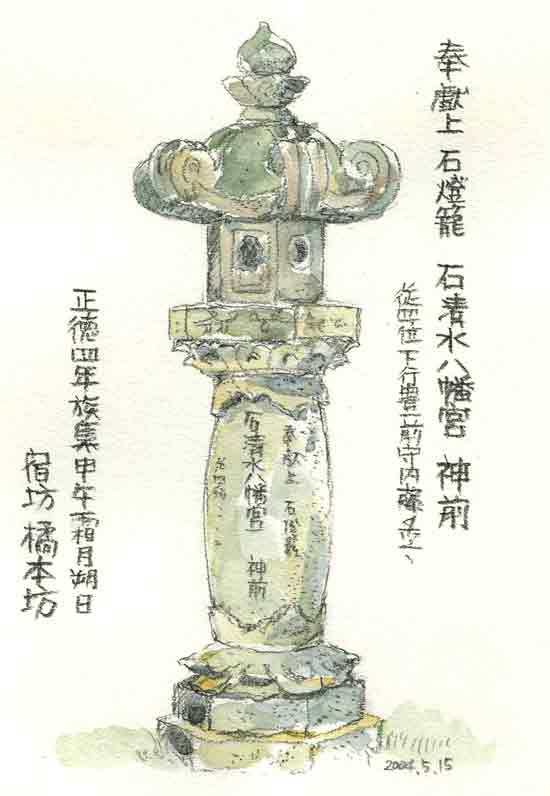 奉獻上 石燈籠 石清水八幡宮 神前
從四位下行豊前守内藤
正徳四年族集甲午霜月朔日
宿坊 橘本坊
奉獻上 石燈籠
石清水八幡宮 神前
2004.5.15